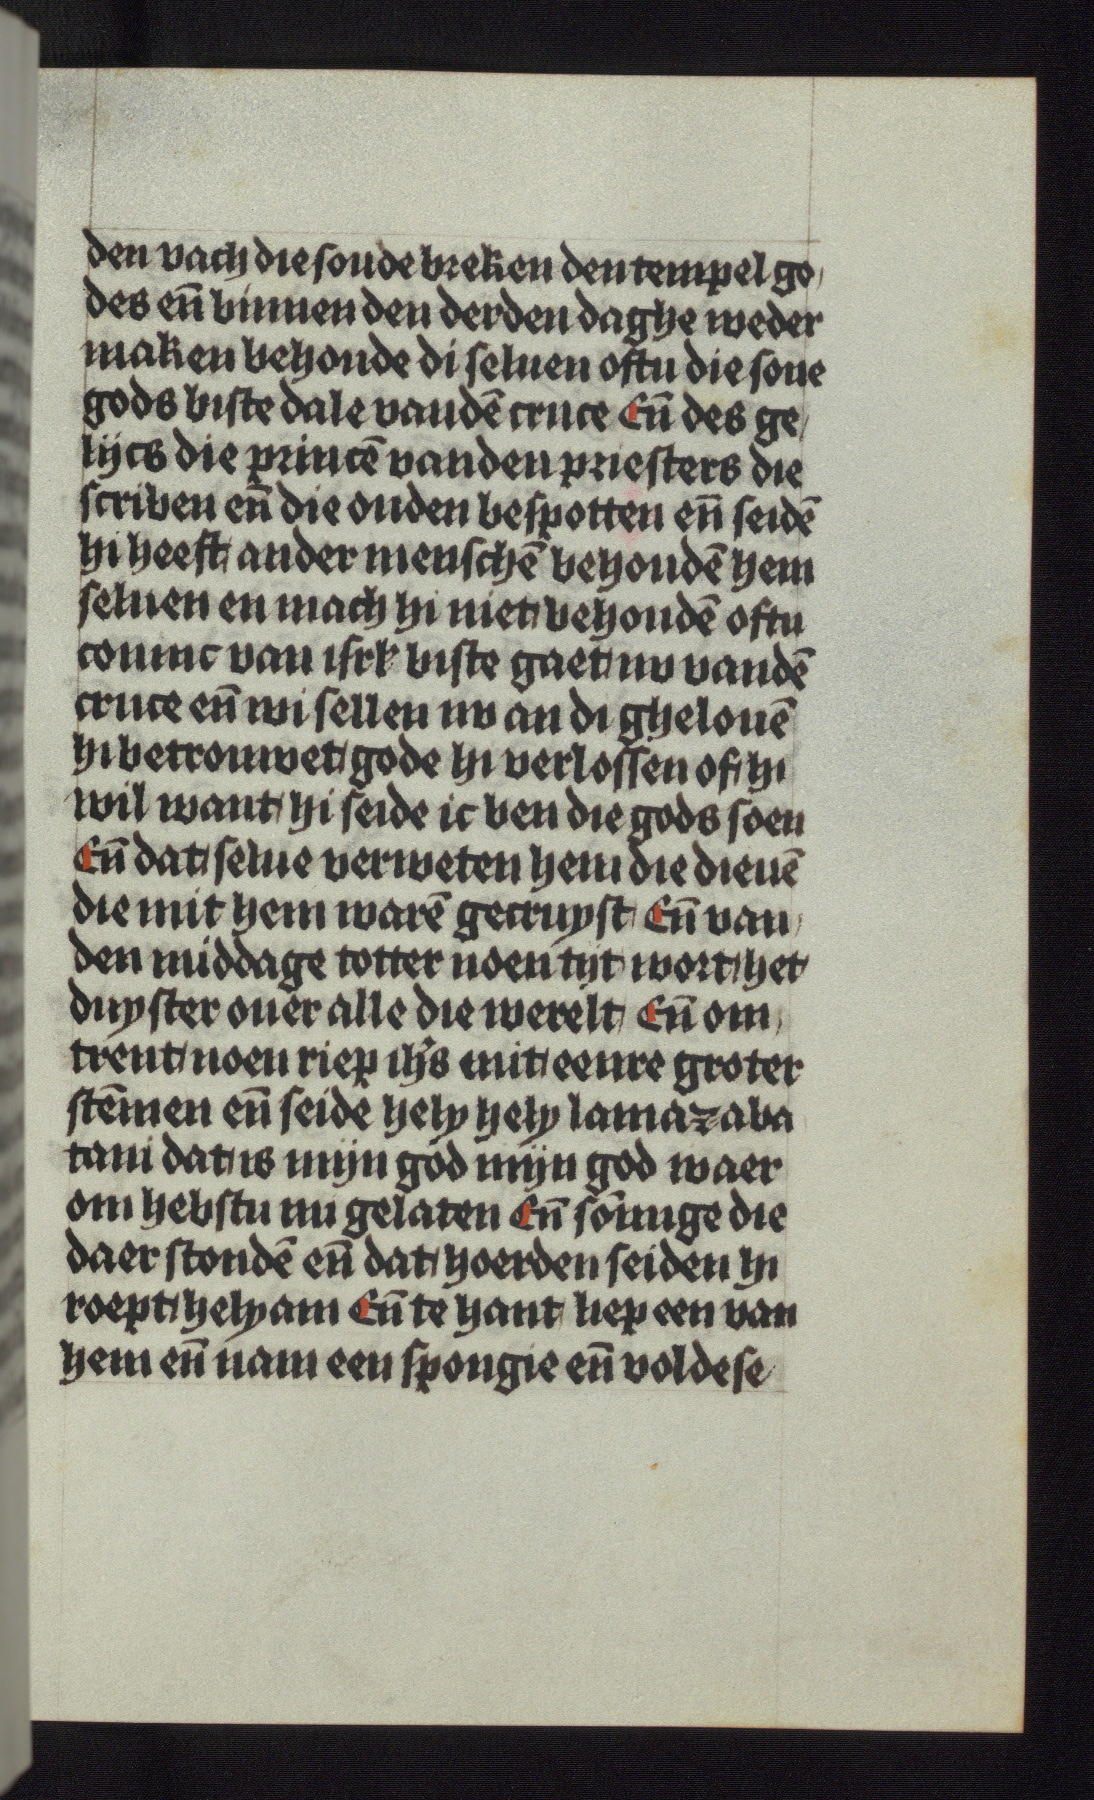 den vach die soude breken den tempel go
des en̄ binnen den derden daghe weder
maken behoude di seluen oftu die sone
gods biste dale vandē cruce En̄ des ge
lijcs die princē vanden priesters die
scriben en̄ die ouden bespotten en̄ seidē
hi heeft ander menschē behoudē hem
seluen en mach hi niet behoudē oftu
coninc van isrl biste gaet nv vandē
cruce en̄ wi sellen nv an di ghelouē
hi betrouwet gode hi verlossen of hi
wil want hi seide ic ben die gods soen
En̄ dat selue verweten hem die dieuē
die mit hem warē gecruyst En̄ van
den middage totter noen tijt wort het
duyster ouer alle die werelt En̄ om
trent noen riep ih̄s mit eenre groter
stēmen en̄ seide hely hely lamazaba
tani dat is mijn god mijn god waer
om hebstu mi gelaten En̄ sōmige die
daer stondē en̄ dat hoerden seiden hi
roept helyam En̄ te hant liep een van
hem en̄ nam een spongie en̄ voldese